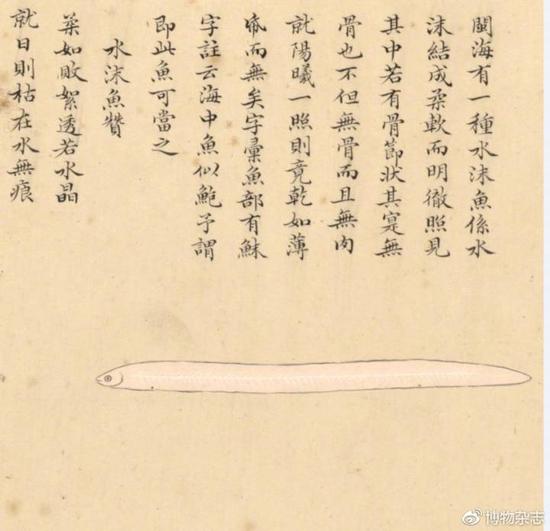 閩海有一種水沫魚係水
沫結成柔軟而明徹照見
其中若有骨節狀其寔無
骨也不但無骨而且無肉
就陽曦一照則竟乾如薄
紙而無矣字彙魚部有䱅
字註云海中魚似鮑予謂
即此魚可當之
水沫魚贊
葉如敗絮透若水晶
就日則枯在水無痕
博物杂志